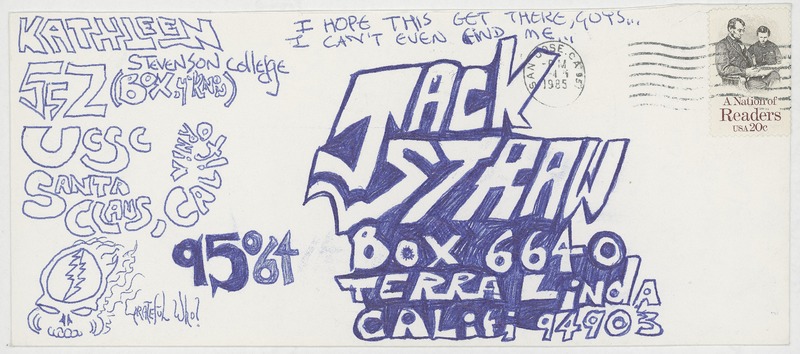 I HOPE THIS GET THERE, GUYS...
I CAN'T EVEN FIND ME...
KATHLEEN
STEVENSON College
UCSC
SANTA
CLAUS, CALIF
95064
GRATEFUL WHO?
SAN JOSE, CA
PM
1985
A Nation of
Readers
USA 20c
JACK
STRAW
BOX 6640
TERRA LINDA
CALIF; 94903